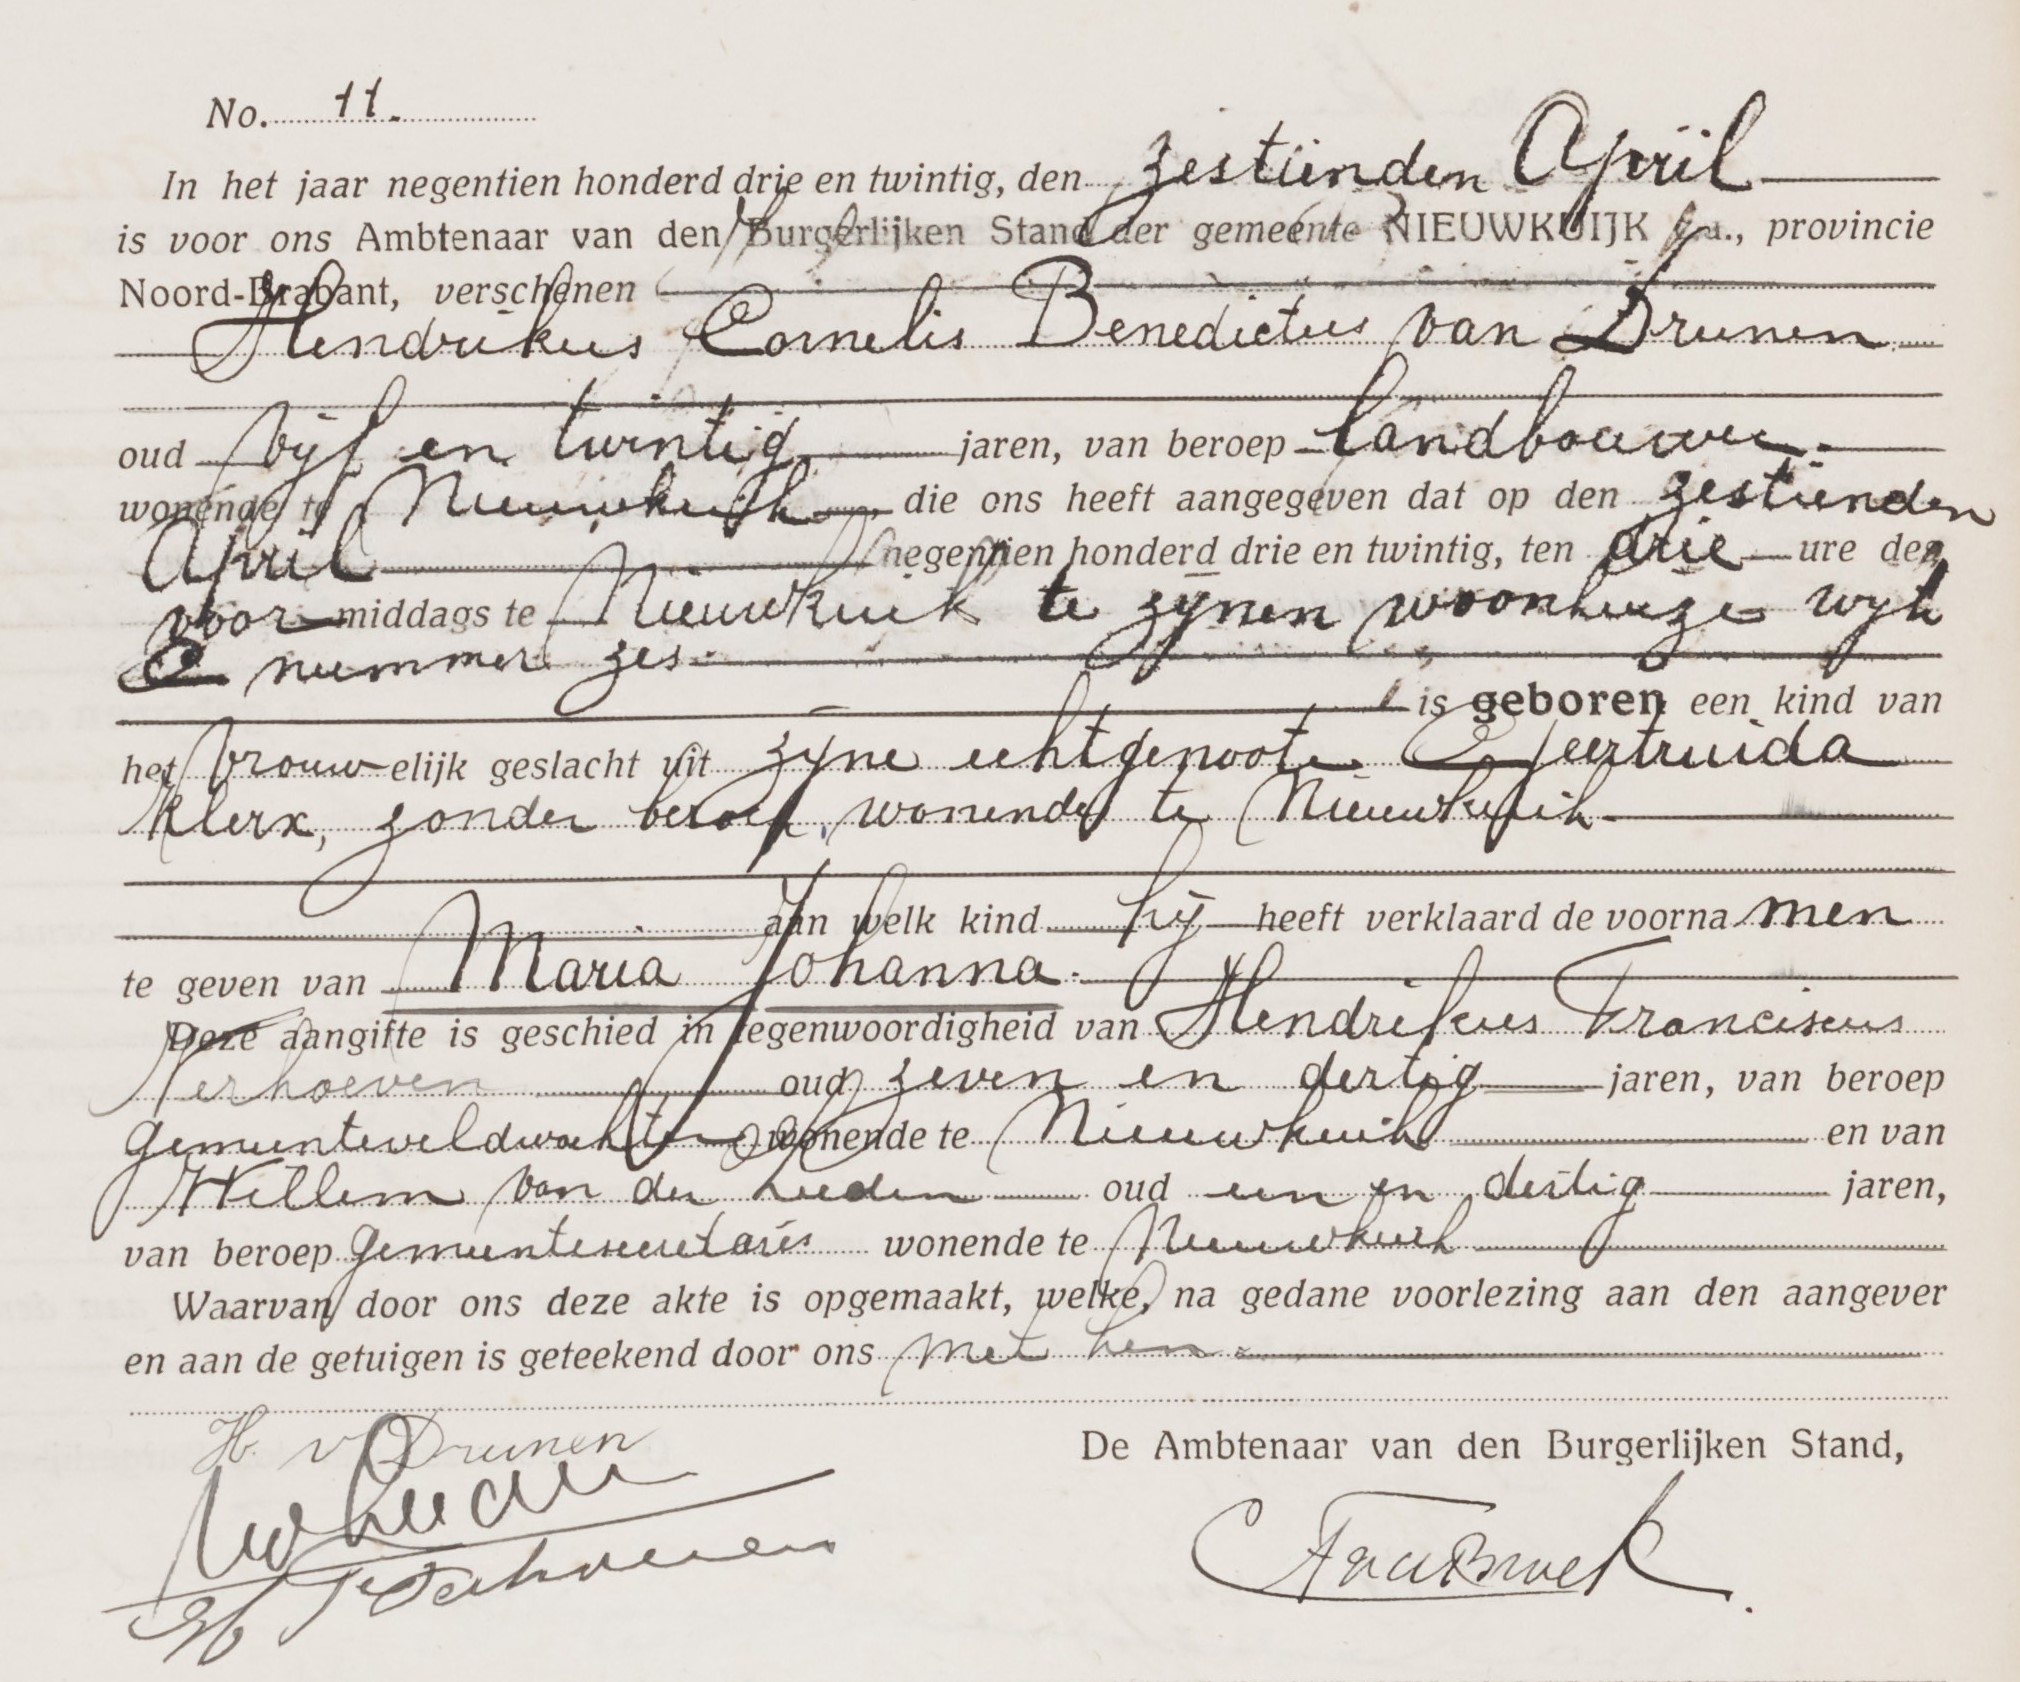 No. 11.
In het jaar negentien honderd drie en twintig, den zestienden April
is voor ons Ambtenaar van den Burgerlijken Stand der gemeente NIEUWKUIJK c.a., provincie
Noord-Brabant, verschenen
Hendrikus Cornelis Benedictus van Drunen
oud vijf en twintig jaren, van beroep landbouwer
wonende te Nieuwkuijk die ons heeft aangegeven dat op den zestienden
April negentien honderd drie en twintig, ten drie ure des
voor middags te Nieuwkuik te zijnen woonhuize wijk
C nummer zes.
is geboren een kind van
het vrouw elijk geslacht uit zijne echtgenoote Geertruida
Klerx, zonder beroep, wonende te Nieuwkuijk
aan welk kind hij heeft verklaard de voorna men
te geven van Maria Johanna.
Deze aangifte is geschied in tegenwoordigheid van Hendrikus Franciscus
Verhoeven oud zeven en dertig jaren, van beroep
gemeenteveldwachter wonende te Nieuwkuik en van
Willem van der Leeden oud een en dertig jaren,
van beroep gemeentesecretaris wonende te Nieuwkuik
Waarvan door ons deze akte is opgemaakt, welke, na gedane voorlezing aan den aangever
en aan de getuigen is geteekend door ons met hen.
H. v Drunen
De Ambtenaar van den Burgerlijken Stand,
Verhoeven